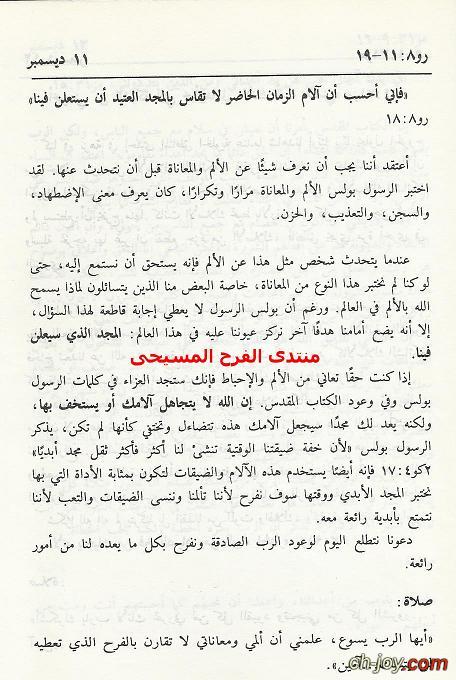 رو٨:١١-١٩
١١ ديسمبر
«فإني أحسب أن آلام الزمان الحاضر لا تقاس بالمجد العتيد أن يستعلن فينا»
رو٨:١٨
أعتقد أننا يجب أن نعرف شيئًا عن الألم والمعاناة قبل أن نتحدث عنها. لقد
اختبر الرسول بولس الألم والمعاناة مرارًا وتكرارًا، كان يعرف معنى الإضطهاد،
والسجن، والتعذيب، والحزن.
عندما يتحدث شخص مثل هذا عن الألم فإنه يستحق أن نستمع إليه، حتى
لو كنا لم نختبر هذا النوع من المعاناة، خاصة البعض منا الذين يتسائلون لماذا يسمح
الله بالألم في العالم. ورغم أن بولس الرسول لا يعطي إجابة قاطعة لهذا السؤال،
إلا أنه يضع أمامنا هدفًا آخر نركز عيوننا عليه في هذا العالم: المجد الذي سيعلن
فينا.
منتدى الفرح المسيحى
إذا كنت حقًا تعاني من الألم والإحباط فإنك ستجد العزاء في كلمات الرسول
بولس وفي وعود الكتاب المقدس. إن الله لا يتجاهل آلامك أو يستخف بها،
ولكنه يعد لك مجدًا سيجعل آلامك هذه تتضاءل وتختفي كأنها لم تكن، يذكر
الرسول بولس «لأن خفة ضيقتنا الوقتية تنشئ لنا أكثر فأكثر ثقل مجد أبديًا»
٢كو٤:١٧ فإنه أيضًا يستخدم هذه الآلام والضيقات لتكون بمثابة الأداة التي بها
نختبر المجد الأبدي ووقتها سوف نفرح لأننا تألمنا وننسى الضيقات والتعب لأننا
نتمتع بأبدية رائعة معه.
دعونا نتطلع اليوم لوعود الرب الصادقة ونفرح بكل ما يعده لنا من أمور
رائعة.
صلاة:
«أيها الرب يسوع، علمني أن ألمي ومعاناتي لا تقارن بالفرح الذي تعطيه
ch-joy.com